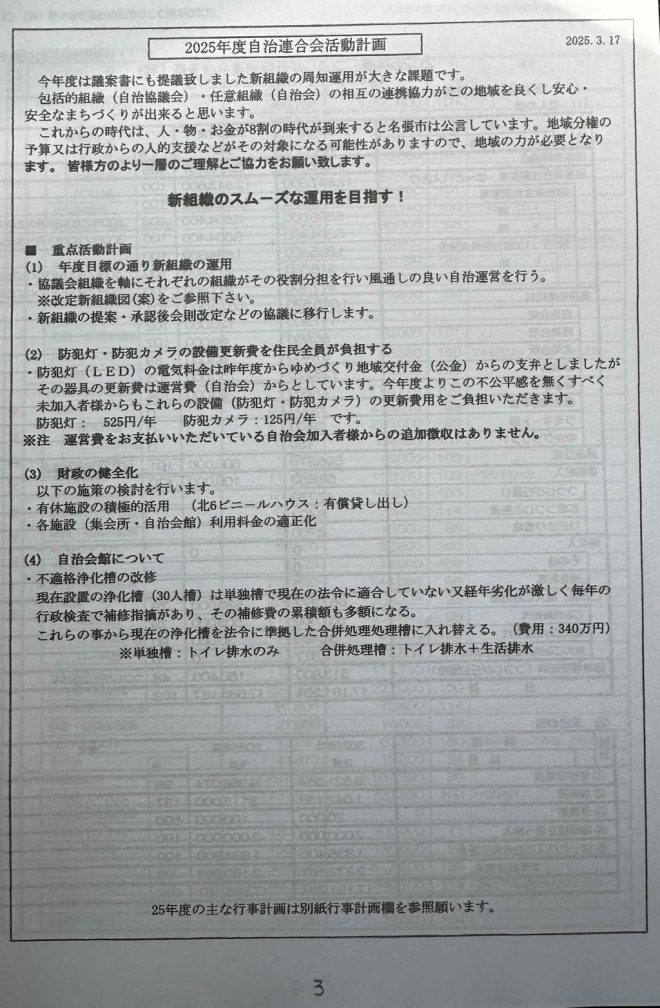 2025年度自治連合会活動計画
2025.3.17
今年度は議案書にも提議致しました新組織の周知運用が大きな課題です。
包括的組織（自治協議会）・任意組織（自治会）の相互の連携協力がこの地域を良くし安心・
安全なまちづくりが出来ると思います。
これからの時代は、人・物・お金が8割の時代が到来すると名張市は公言しています。地域分権の
予算又は行政からの人的支援などがその対象になる可能性がありますので、地域の力が必要となり
ます。皆様方のより一層のご理解とご協力をお願い致します。
新組織のスムーズな運用を目指す！
■ 重点活動計画
(1) 年度目標の通り新組織の運用
・協議会組織を軸にそれぞれの組織がその役割分担を行い風通しの良い自治運営を行う。
※改定新組織図(案)をご参照下さい。
・新組織の提案・承認後会則改定などの協議に移行します。
(2) 防犯灯・防犯カメラの設備更新費を住民全員が負担する
・防犯灯（ＬＥＤ）の電気料金は昨年度からゆめづくり地域交付金（公金）からの支弁としましたが
その器具の更新費は運営費（自治会）からとしています。今年度よりこの不公平感を無くすべく
未加入者様からもこれらの設備（防犯灯・防犯カメラ）の更新費用をご負担いただきます。
防犯灯： 525円/年 防犯カメラ：125円/年 です。
※注 運営費をお支払いいただいている自治会加入者様からの追加徴収はありません。
(3) 財政の健全化
以下の施策の検討を行います。
・有休施設の積極的活用 （北6ビニールハウス：有償貸し出し）
・各施設（集会所・自治会館）利用料金の適正化
(4) 自治会館について
・不適格浄化槽の改修
現在設置の浄化槽（30人槽）は単独槽で現在の法令に適合していない又経年劣化が激しく毎年の
行政検査で補修指摘があり、その補修費の累積額も多額になる。
これらの事から現在の浄化槽を法令に準拠した合併処理処理槽に入れ替える。（費用：340万円）
※単独槽：トイレ排水のみ 合併処理槽：トイレ排水＋生活排水
25年度の主な行事計画は別紙行事計画欄を参照願います。
3